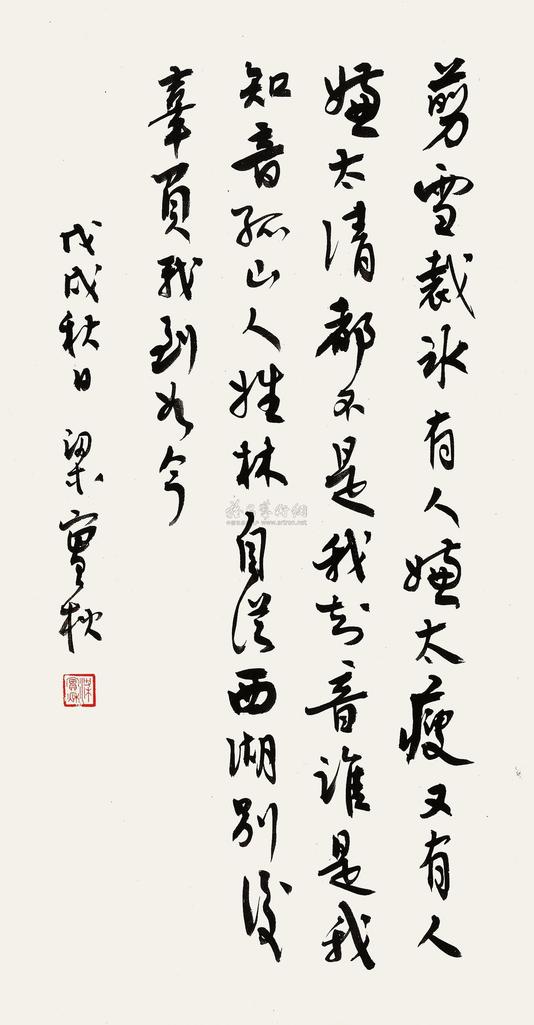 剪雪裁冰有人嫌太瘦又有人
嫌太清都不是我知音誰是我
知音孤山人姓林自從西湖別後
辜負我到如今
戊戌秋日 梁實秋
www.artron.net